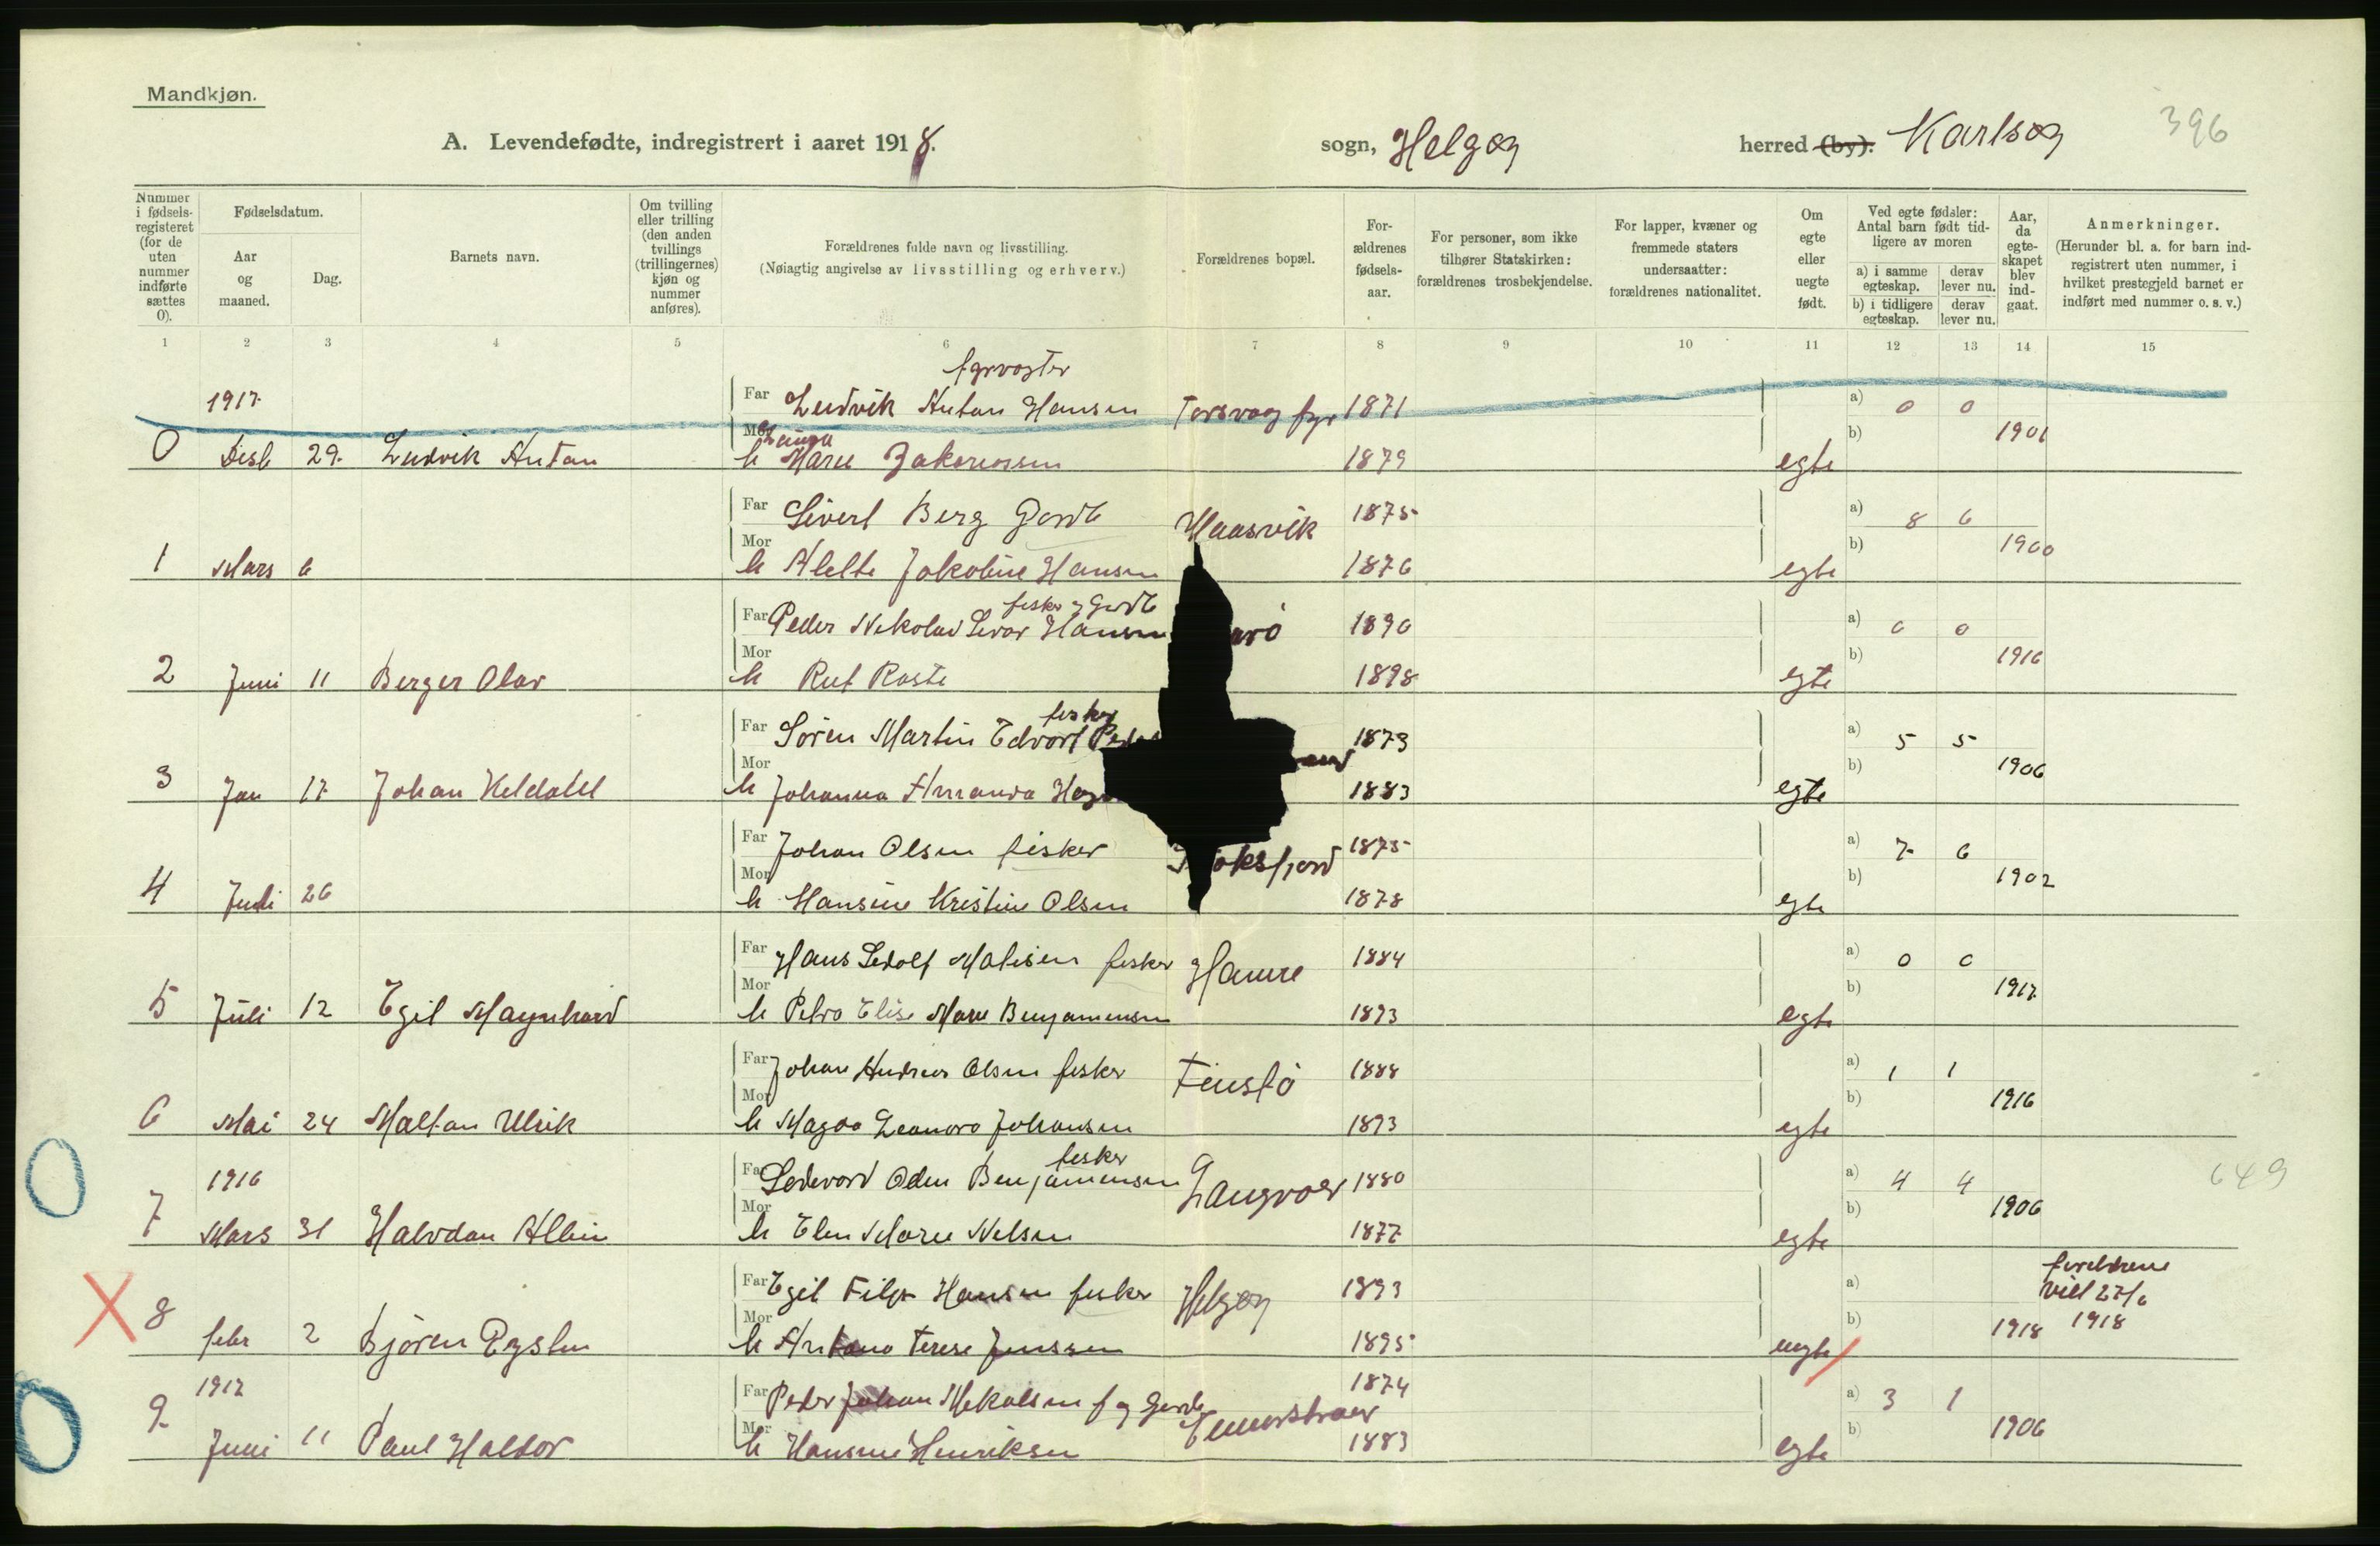 Mandkjøn.
A. Levendefødte, indregistrert i aaret 1918.
sogn, Helgøy
herred (by). Karlsøy
396
Nummer i fødsels-registeret (for de uten nummer indførte sættes 0).
Fødselsdatum.
Aar og maaned.
Dag.
Barnets navn.
Om tvilling eller trilling (den anden tvillings (trillingernes) kjøn og nummer anføres).
Forældrenes fulde navn og livsstilling.
(Nøiagtig angivelse av livsstilling og erhverv.)
Forældrenes bopæl.
For-ældrenes fødsels-aar.
For personer, som ikke tilhører Statskirken: forældrenes trosbekjendelse.
For lapper, kvæner og fremmede staters undersaatter: forældrenes nationalitet.
Om egte eller uegte født.
Ved egte fødsler: Antal barn født tid-ligere av moren
a) i samme egteskap.
derav lever nu.
b) i tidligere egteskap.
derav lever nu.
Aar, da egte-skapet blev ind-gaat.
Anmerkninger.
(Herunder bl. a. for barn ind-registrert uten nummer, i hvilket prestegjeld barnet er indført med nummer o. s. v.)
1 2 3 4 5 6 7 8 9 10 11 12 13 14 15
fyrvogter
1917 Far Ludvik Anton Hansen Torsvaag fyr 1871 a) 0 0
b) 1901
0 Desb 29. Ludvik Anton Mor h Marie Jakobsen 1879 egte
Far Sivert Berg Gardb Haasvik 1875 a) 8 6
Mor b) 1900
1 Mars 6 h Alette Jakobine Hansen 1876 egte
fisker og Gardb
Far Peder Nikolai Hansen 1890 a) 0 0
Mor b) 1916
2 Juni 11 Berger Olav h Rut Roste 1898 egte
fisker
Far Søren Martin Edvart 1873 a) 5 5
Mor b) 1906
3 Jan 17 Johan Heldahl h Johanna Amanda 1883 egte
Far Johan Olsen fisker 1875 a) 7 6
Mor b) 1902
4 Juli 26 h Hansine Kristine Olsen 1878 egte
Far Hans Sedolf Matisen fisker Hamre 1884 a) 0 0
Mor b) 1917
5 Juli 12 Egil Maynhard h Petra Elise Marie Benjaminsen 1893 egte
Far Johan Andreas Olsen fisker 1888 a) 1 1
Mor b) 1916
6 Mai 24 Maltan Ulrik h Magda Leonora Johansen 1893 egte
fisker
1916 Far Oden Benjaminsen 1880 a) 4 4 649
Mor b) 1906
7 Mars 31 Halvdan Albin h Elen Marie Nelsen 1877 egte
Far Egil Filip Hansen fisker Helgøy 1893 a) foreldrene viet 27/6 1918
Mor b) 1918
X 8 febr 2 Bjøren h Antona Terese Jenssen 1895 uegte
1917 Far Peder Johan Mikalsen f og Gardb 1874 a) 3 1
Mor b) 1906
9 Juni 11 Paul Haldor h Hansine Henriksen 1883 egte